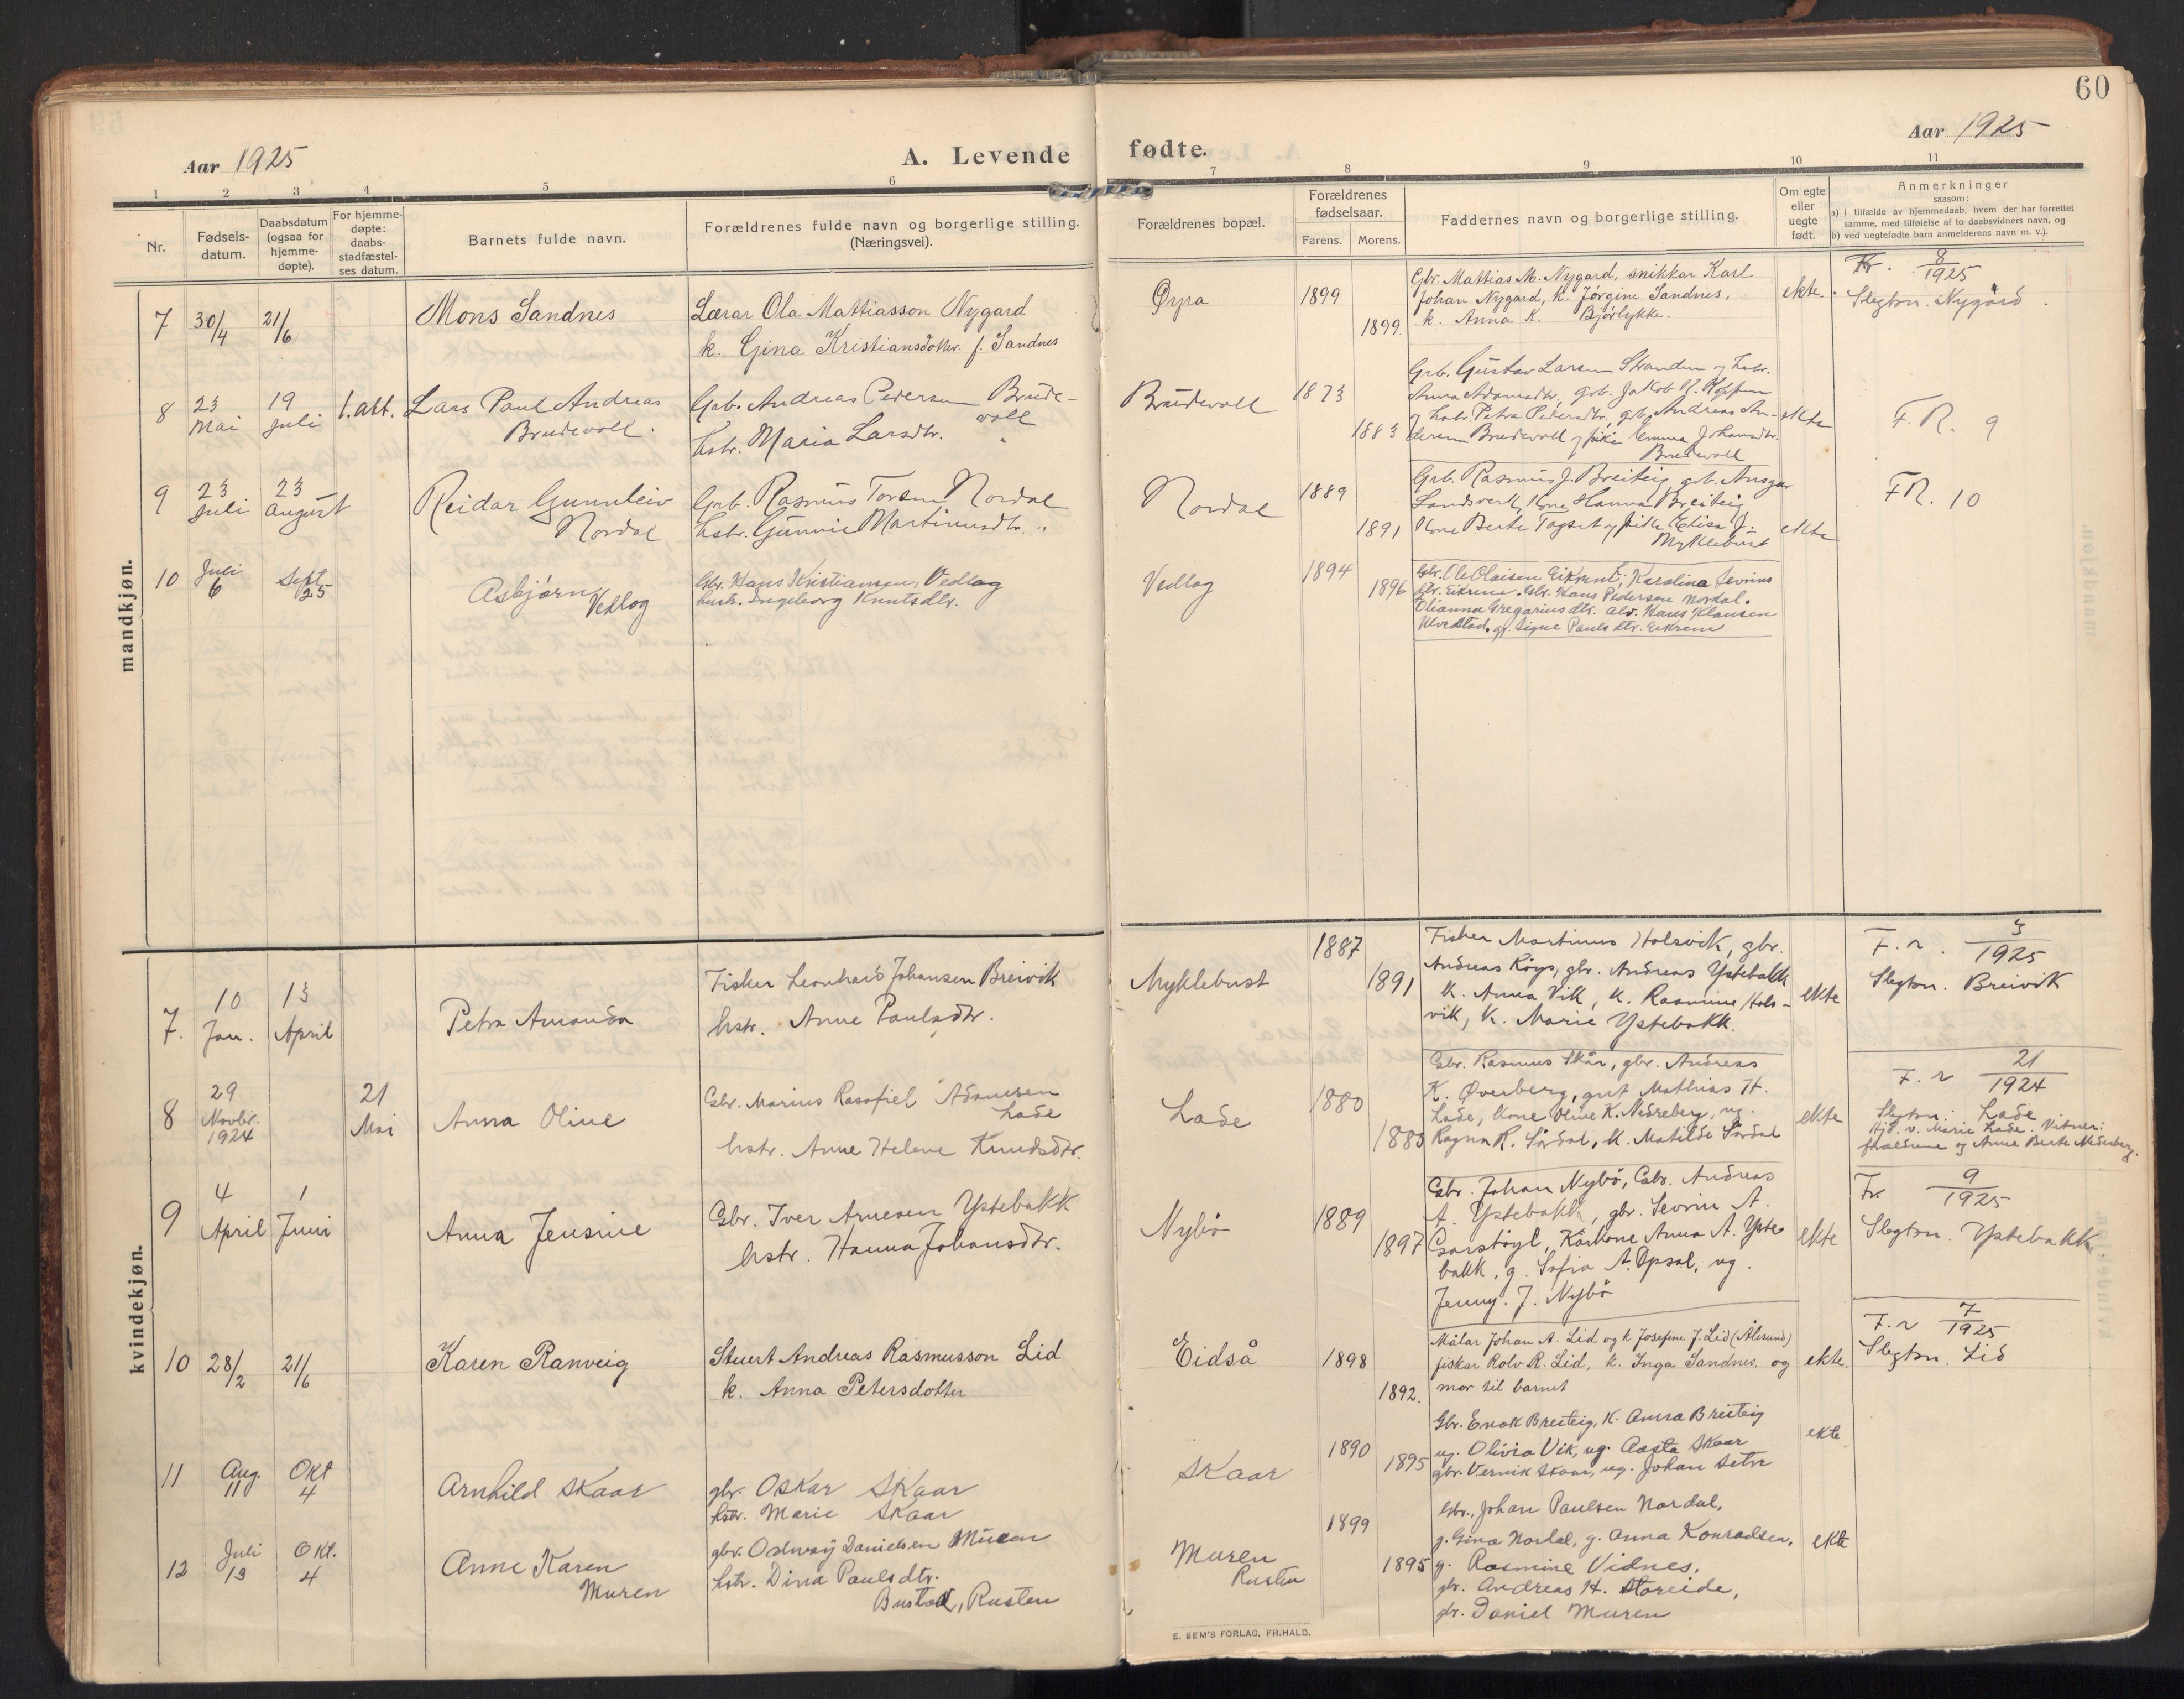 60
Aar 1925
A. Levende
fødte.
Aar 1925
1 2 3 4 5 6 7 8 9 10 11
Nr.
Fødsels-
datum.
Daabsdatum
(ogsaa for
hjemme-
døpte).
For hjemme-
døpte:
daabs-
stadfæstel-
ses datum.
Barnets fulde navn.
Forældrenes fulde navn og borgerlige stilling.
(Næringsvei).
Forældrenes bopæl.
Forældrenes
fødselsaar.
Farens. Morens.
Faddernes navn og borgerlige stilling.
Om egte
eller
uegte
født.
Anmerkninger
saasom:
a) i tilfælde av hjemmedaab, hvem der har forrettet
samme, med tilføielse af to daabsvidners navn, og
b) ved uegtefødte barn anmelderens navn m. v.).
mandkjøn.
7 30/4 21/6
Mons Sandnes
Lærar Ola Mattiasson Nygard
k. Gina Kristiansdotter f. Sandnes
Øyra
1899
1899.
Gbr. Mattias M. Nygard, snikkar Karl
Johan Nygard, k. Jørgine Sandnes,
k. Anna K. Bjørlykke.
ekte.
Fr. 8/1925
Slegtsn. Nygård.
8
23 Mai
19 Juli
1. aft.
Lars Paul Andreas
Brudevoll.
Grb. Andreas Pedersen Brude-
voll
hstr. Maria Larsdtr. "
Brudevoll
1873
1883
Grb. Gustav Larsen Stranden og hstr.
Anna Adamsdtr, grb. Jakob
og hstr. Petra Pedersdtr, grb. Andreas An-
dersen Brudevoll og pike Emma Johansdtr.
Brudevoll
ekte
F. R. 9
9
23 Juli
23 August
Reidar Gunnleiv
Nordal
Grb. Rasmus Torsen Nordal
hstr. Gunnie Martinusdtr. "
Nordal
1889
1891
Grb. Rasmus J. Breiteig, grb. Ansgar
Landsverk, Kone Hanna Breiteig
Kone Berte Tagset og pike Elisa J.
Myklebust
ekte
F R. 10
10
Juli 6
Sept 25
Asbjørn
Vedlog
Gbr. Hans Kristiansen, Vedlog
hustr. Ingeborg Knutsdtr.
Vedlog
1894
1896
Gbr. Ole Olaisen Eikrem, Karolina Sevrins
dtr. Eikrem. Gbr. Hans Pedersen Nordal.
Olianna Gregarius dtr. Hans Klausen
Ulvestad. gf. Signe Pauls dtr. Eikrem
kvindekjøn.
7.
10 Jan.
13 April
Petra Amanda
Fisker Leonhard Johansen Breivik
hstr. Anne Paulsdtr.
Myklebust
1887
1891
Fisker Martinus Holsvik, gbr.
Andreas Røys, gbr. Andreas Ystebakk
k. Anna Vik, k. Rasmine Hols-
vik, k. Marie Ystebakk.
ekte
F. r. 3/1925
Slegtsn. Breivik
8
29 Novbr. 1924
21 Mai
Anna Oline
Gbr. Marius Rasafiel Adamsen
Lade
hstr. Anne Helene Knudsdtr.
Lade
1880
1883
Gbr. Rasmus Skår, gbr. Andreas
K. Øverberg, gut Mathias H.
Lade, Kone Oline K. Nedreberg, ug.
Ragna R. Sørdal, k. Matilde Sørdal
ekte
F. r 21/1924
Slegtsn: Lade
Hjd. v. Marie Lade. Vitner:
foreldrene og Anne Berte Nedreberg.
9
4 April
1 Juni
Anna Jensine
Gbr. Iver Arnesen Ystebakk
hstr. Hanna Johansdtr.
Nybø
1889
1897
Gbr. Johan Nybø, Gbr. Andreas
A. Ystebakk, gbr. Sevrin A.
Garshøyl, Kårkone Anna A. Yste
bakk, g. Sofia A. Opsal, ug.
Jenny. J. Nybø
ekte
Fr. 9/1925
Slegtsn. Ystebakk.
10 28/2 21/6
Karen Ranveig
Stuert Andreas Rasmusson Lid
k. Anna Petersdotter
Eidså
1898
1892.
Målar Johan A. Lid og k Josefine J. Lid (Ålesund)
fiskar Rolv R. Lid, k. Inga Sandnes og
mor til barnet
ekte.
F. r 7/1925
Slegtsn. Lid
11
Aug. 11
Okt 4
Arnhild Skaar
gbr. Oskar Skaar
hstr. Marie Skaar
Skaar
1890
1895
Gbr. Enok Breiteig, K. Anna Breiteig
ug. Olivia Vik, ug. Aasta Skaar
gbr. Vernik Skaar, ug. Johan Setre
ekte
12
Juli 13
Okt. 4
Anne Karen
Muren
gbr. Odmay Danielsen Muren
hstr. Dina Paulsdtr.
Bustad, Rusten
Muren
Rusten
1899
1895
Gbr., Johan Paulsen Nordal,
g. Gina Nordal, g. Anna Konradsen,
g. Rasmine Vidnes,
gbr. Andreas H. Storeide,
gbr. Daniel Muren
ekte
E. SEM'S FORLAG, FR.HALD.